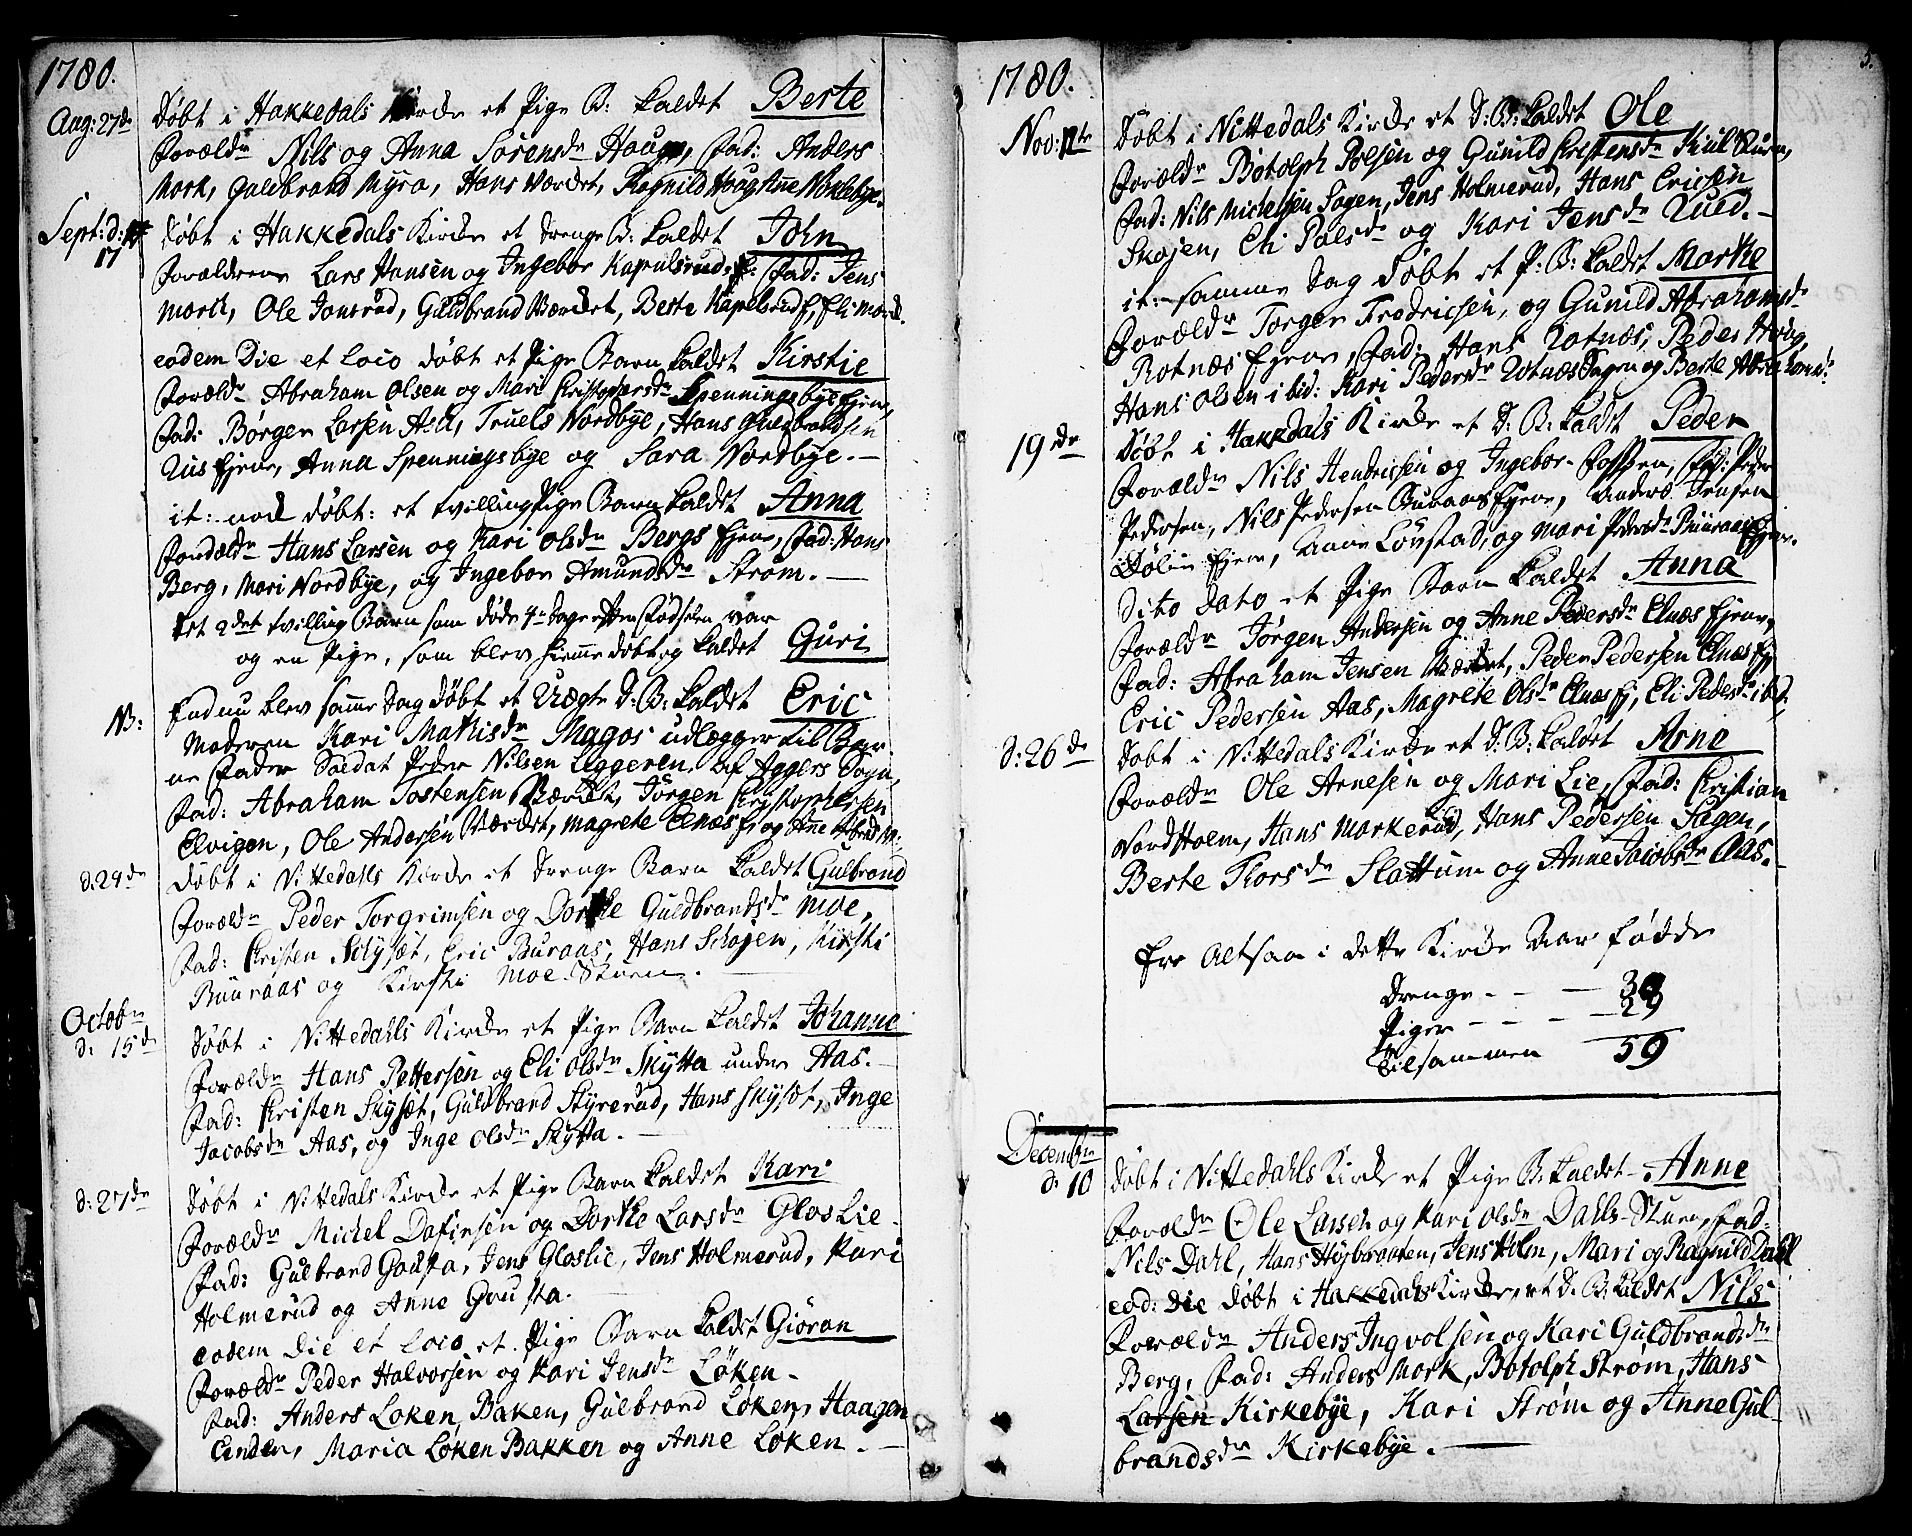 1780.
Aug: 27de
Døbt i Hakkedals Kirke et Pige B: kaldet Berte
Forældr Nils og Anna Sørensdr Haugn, Fad: Anders
Mork, Guldbrand Myra, Hans Værdet, Ragnild Haug Anne
Sept: d: 17
Døbt i Hakkedals Kirke et Drenge B: kaldet John
Forældrene Lars Hansen og Ingebor Kapulsrud, Fad: Jens
Mork, Ole Jonsrud, Guldbrand Værdet, Berte Kapelsrud, Eli Mork.
eodem Die et loco døbt et Pige Barn kaldet Kirstie
Forældr Abraham Olsen og Mari Christophersdr Spenningsbye Ejere,
Fad: Børger Larsen Aas, Truels Nordbye, Hans Guldbrandsen
Ejere, Anna Spenningsbye og Sara Nordbye. —
it: nok døbt: et tvilling Pige Barn kaldet Anna
Forældr Hans Larsen og Kari Olsdr Bergs Ejere, Fad: Hans
Berg, Mari Nordbye, og Ingebor Amundsdr Strøm. —
Det 2det tvilling Barn som døde 4re Dage efter Fødselen var
og en Pige, som blev hiemmedøbt og kaldet Guri
NB:
Endnu blev samme Dag døbt et Uægte D: B: kaldet Eric
Moderen Kari Mathisdr Magos udlægger til Bar-
ne Fader Soldat Peder Nilsen Leggeren af Aggers Sogn,
Fad: Abraham Tostensen Værdet, Jørgen Christophersen
Elvigen, Ole Andersen Værdet, Magrete Elnæs Ej og Anne
d: 24de
Døbt i Nittedals Kirke et Drenge Barn kaldet Gulbrand
Forældr Peder Torgrimsen og Dorthe Guldbrandsdr Moe,
Fad: Christen Skysæt, Eric Buraas, Hans Schøjen, Kirsti
Buuraas og Kirsti Moe-Stuen.
Octobr
d: 15de
Døbt i Nittedahls Kirke et Pige Barn kaldet Johanne
Forældr Hans Pettersen og Eli Olsdr Skytta under Aas.
Fad: Christen Skysæt, Guldbrand Skyrerud, Hans Skysæt, Inge
Jacobsdr Aas, og Inge Olsdr Skytta. —
d: 27de
Døbt i Nittedals Kirke et Pige Barn kaldet Kari
Forældr Michel Dafinsen og Dorthe Larsdr Gloslie
Fad: Gulbrand Gousta, Jens Gloslie, Jens Holmerud, Kari
Holmerud og Anne Gousta.
eodem Die et Loco et Pige Barn kaldet Giøran
Forældr Peder Halvorsen og Kari Jensdr Løken.
Fad: Anders Løken Baken, Gulbrand Løken, Haagen
Linden, Maria Løken Bakken og Anne Løken. —
5.
1780.
Nov: 12te
Døbt i Nittedals Kirke et D: B: kaldet Ole
Forældr Botolph Polsen og Gunild Christensdr
Fad: Nils Michelsen Sagen, Jens Holmerud, Hans Ericsen
Skøjen, Eli Polsdr og Kari Jensdr Qued. —
it: samme Dag døbt et P: B: kaldet Marthe
Forældr Torger Fredricsen, og Gunild Abrahamsdr
Rotnæs Ejere, Fad: Hans Rotnæs, Peder Houg,
Hans Olsen ibid: Kari Pedersdr Rotnæs Engen og Berte Abrahamsdr
19de
Døbt i Hakkdals Kirke et D: B: kaldt Peder
Forældr Nils Hendricsen og Ingebor Fossen, Fad: Peder
Pedersen, Nils Pedersen Buraas Ejere, Anders Jensen
Dølin Ejere, Anne Løvstad, og Mari Pedersdr Buuraas Ejer.
Dito Dato et Pige Barn kaldet Anna
Forældr Jørgen Andersen og Anne Pedersdr Elnæs Ejere,
Fad: Abraham Jensen Værdet, Peder Pedersen Elnæs Ej
Eric Pedersen Aas, Magrete Olsdr Elnæs Ej, Eli Pedesdr ibid,
d: 26de
Døbt i Nittedals Kirke et D: B: kaldet Arne
Forældr Ole Arnesen og Mari Lie, Fad: Christian
Nord Holm, Hans Markerud, Hans Pedersen Sagen,
Berte Thorsdr Slattum og Anne Jacobsdr Aas.
Ere Altsaa i dette Kirke Aar fødde
Drenge - - — 30
Piger - - - — 29
Tilsammen 59
Decembr
d: 10
Døbt i Nittedahls Kirke et Pige B: kaldet Anne
Forældr Ole Larsen og Kari Olsdr Dahls-Stuen, Fad:
Nils Dahl, Hans Høybraaten, Jens Holm, Mari og Ragnild Dahl
eod: Die døbt i Hakkedals Kirke et D. B: kaldet Nils
Forældr Anders Ingvolsen og Kari Guldbrandsdr
Berg, Fad: Anders Mork, Botolph Strøm, Hans
Larsen Kirkebye, Kari Strøm og Anne Gul-
brandsdr Kirkebye. —